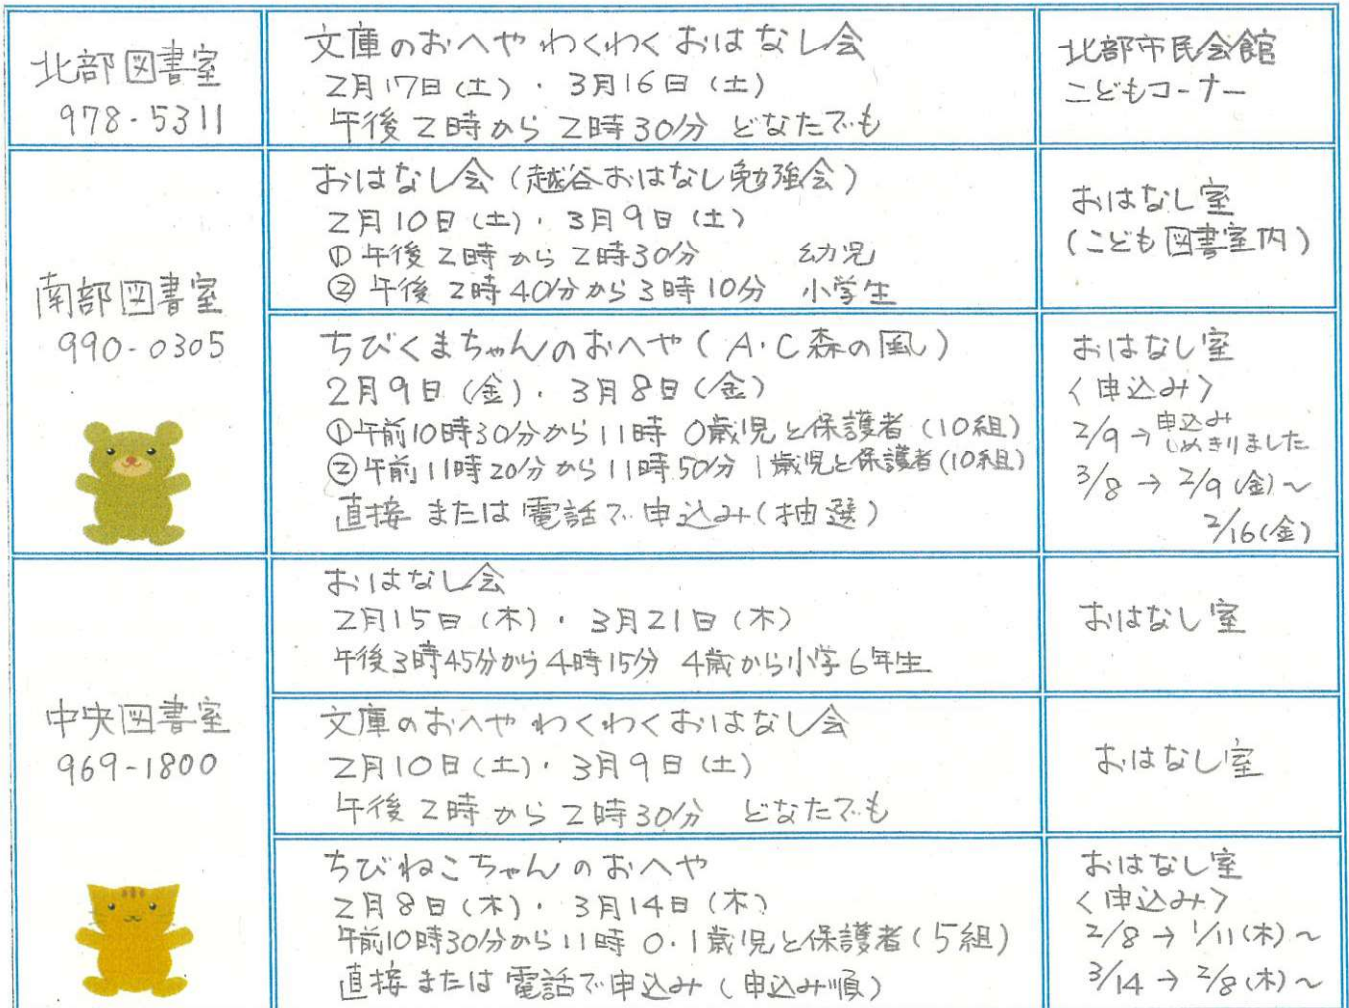 北部図書室
978-5311
文庫のおへや わくわく おはなし会
2月17日(土)・3月16日(土)
午後2時から2時30分 どなたでも
北部市民会館
こどもコーナー
南部図書室
990-0305
おはなし会(越谷おはなし勉強会)
2月10日(土)・3月9日(土)
①午後2時から2時30分 幼児
②午後2時40分から3時10分 小学生
おはなし室
(こども図書室内)
ちびくまちゃんのおへや(A・C森の風)
2月9日(金)・3月8日(金)
①午前10時30分から11時 0歳児と保護者(10組)
②午前11時20分から11時50分 1歳児と保護者(10組)
直接または電話で申込み(抽選)
おはなし室
<申込み>
2/9→申込み
しめきりました
3/8→2/9(金)~
2/16(金)
中央図書室
969-1800
おはなし会
2月15日(木)・3月21日(木)
午後3時45分から4時15分 4歳から小学6年生
おはなし室
文庫のおへや わくわくおはなし会
2月10日(土)・3月9日(土)
午後2時から2時30分 どなたでも
おはなし室
ちびねこちゃんのおへや
2月8日(木)・3月14日(木)
午前10時30分から11時 0.1歳児と保護者(5組)
直接または電話で申込み(申込み順)
おはなし室
<申込み>
2/8→1/11(木)~
3/14→2/8(木)~